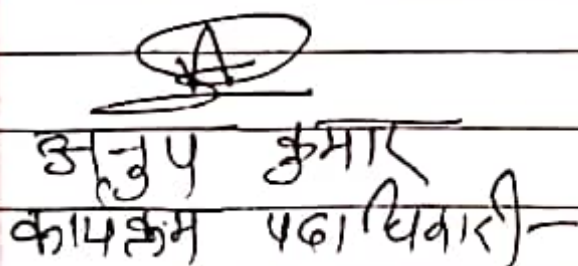 अनुप कुमार
कार्यक्रम पदाधिकारी